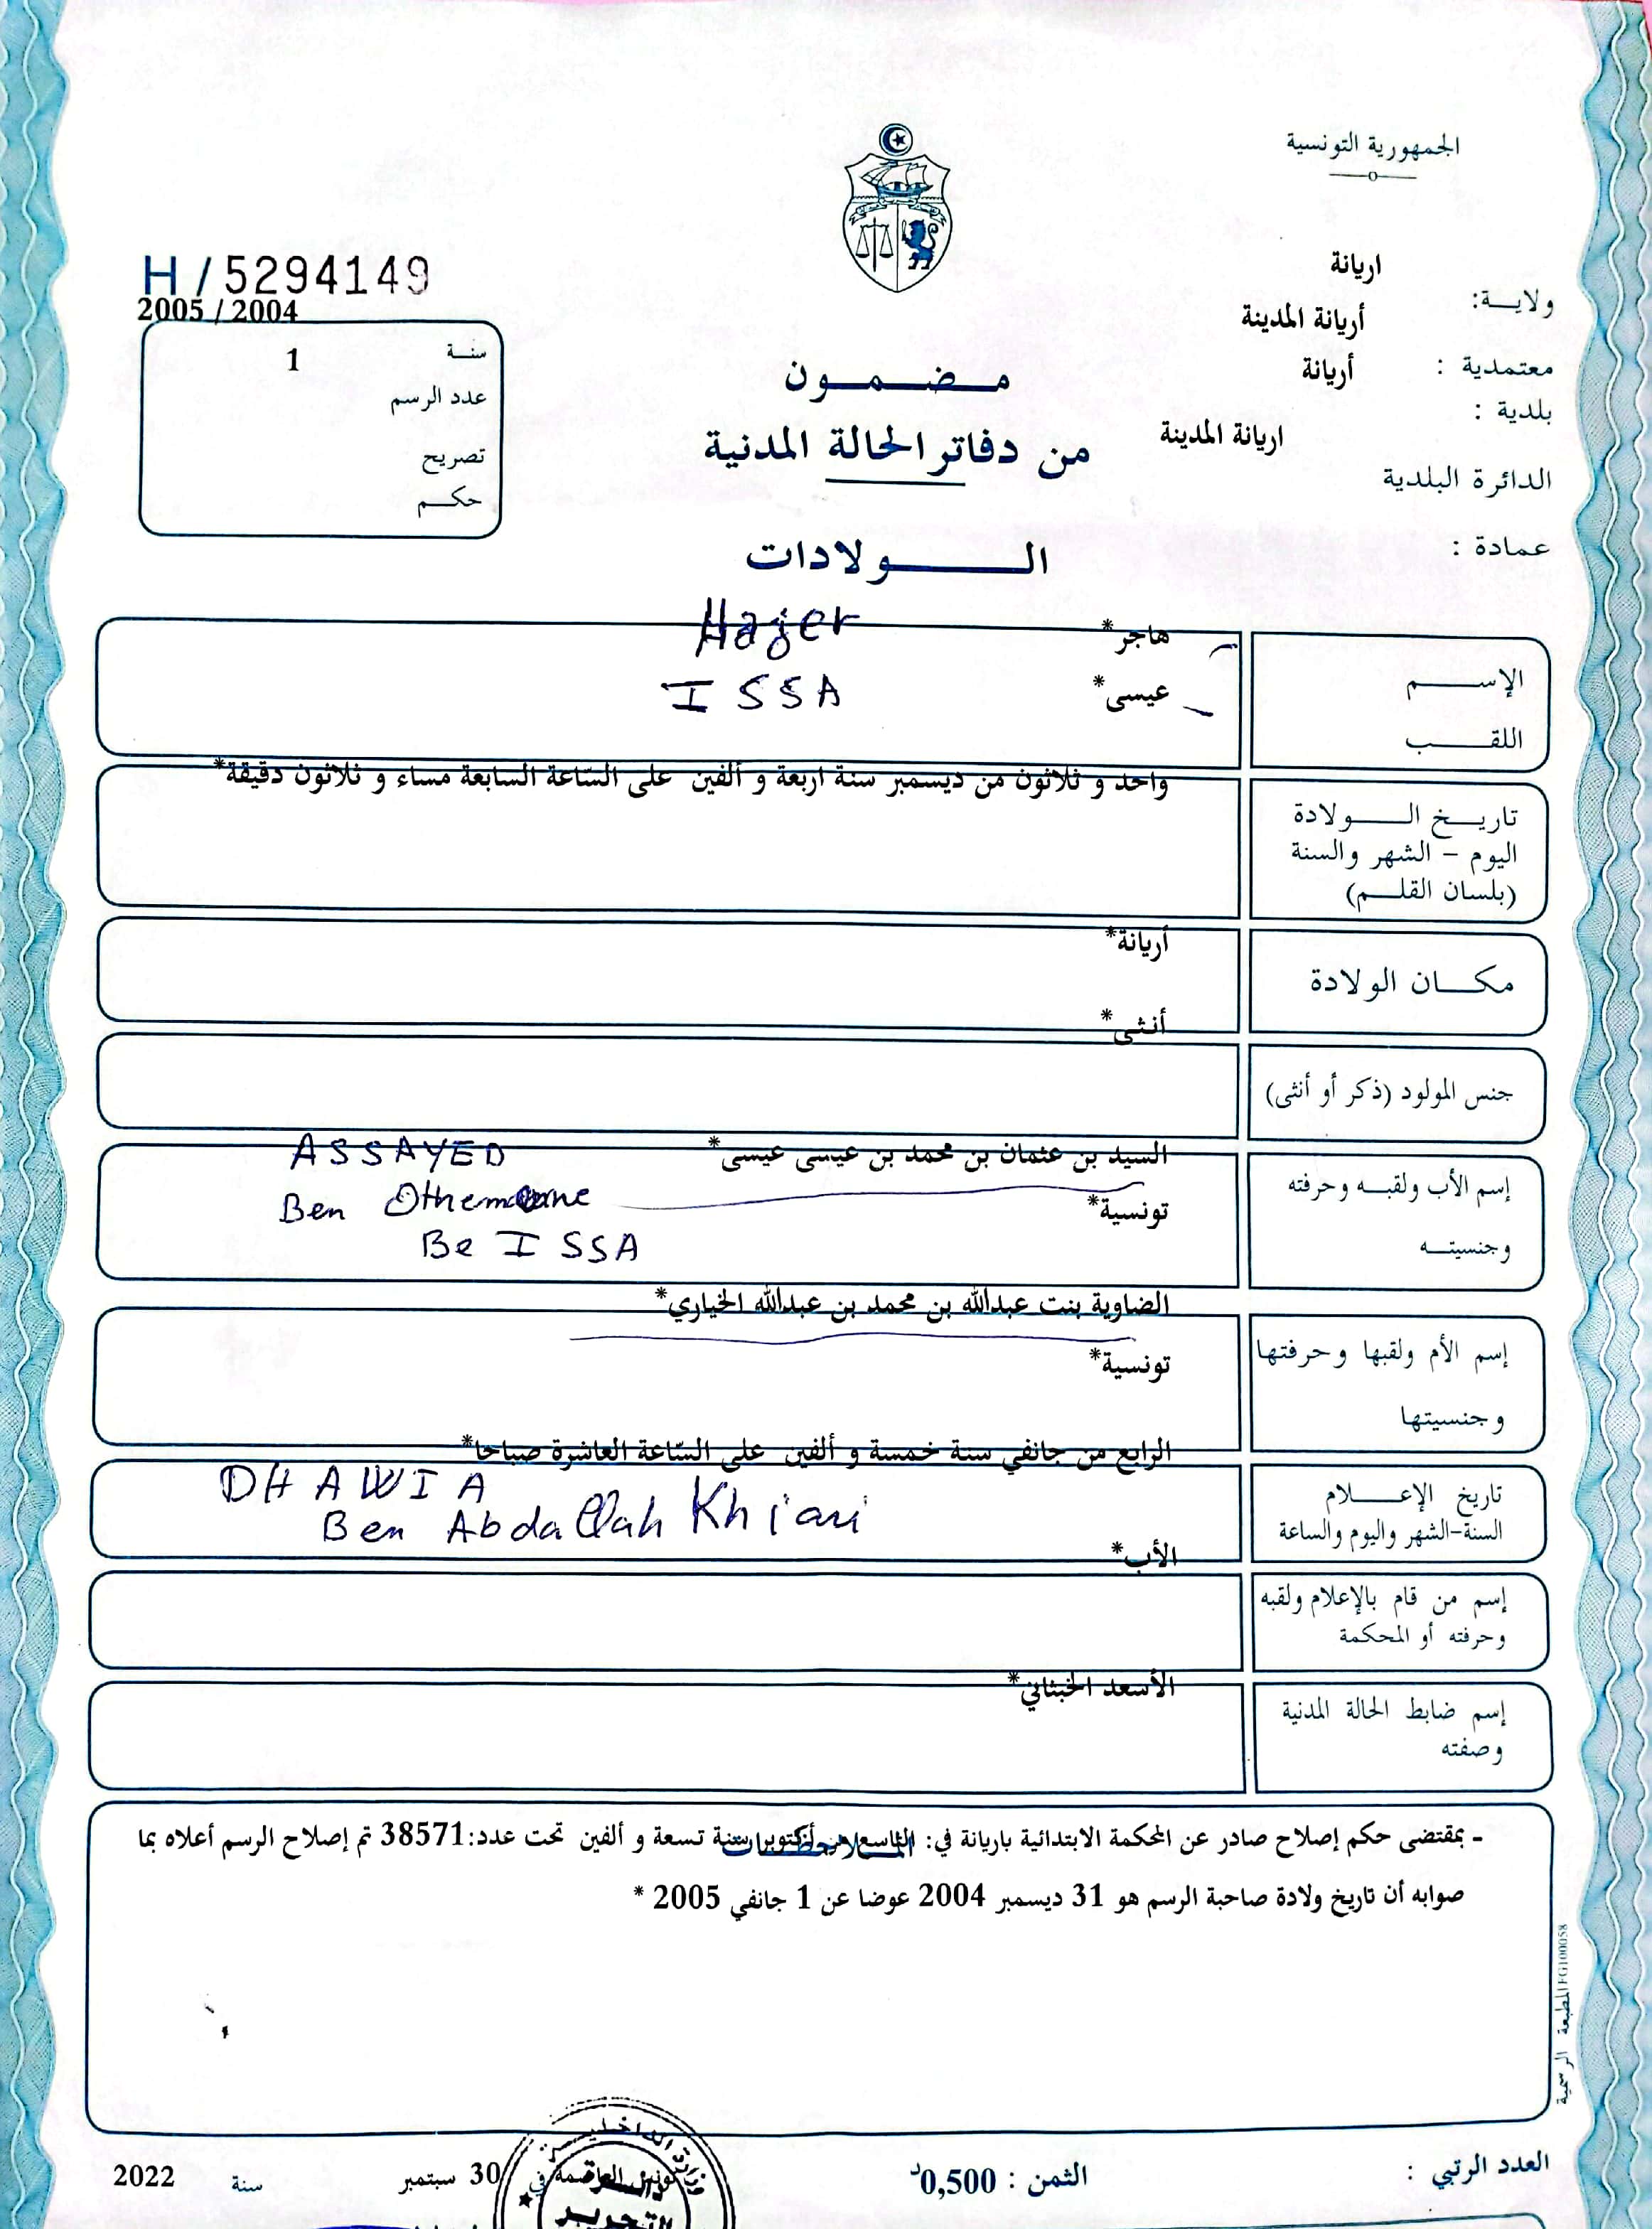 الجمهورية التونسية
ولايـــة: اريانة
معتمدية : أريانة المدينة
بلدية : أريانة
الدائرة البلدية اريانة المدينة
عمادة :
H/5294149
2005 / 2004
سنـــة
1
عدد الرسم
تصريح
حكـــم
مـــضـــمـــون
من دفاتر الحالة المدنية
الـــــولادات
الإســـــم
هاجر*
Hajer
اللقـــــب
عيسى*
ISSA
تاريـــخ الـــــولادة
اليوم – الشهر والسنة
(بلسان القلـــم)
واحد و ثلاثون من ديسمبر سنة اربعة و ألفين على الساعة السابعة مساء و ثلاثون دقيقة*
مكـــان الولادة
أريانة*
جنس المولود (ذكر أو أنثى)
أنثى*
إسم الأب ولقبـــه وحرفته
وجنسيتـــه
السيد بن عثمان بن محمد بن عيسى عيسى*
تونسية*
ASSAYED
Ben Othemane
Be ISSA
إسم الأم ولقبها وحرفتها
وجنسيتها
الضاوية بنت عبدالله بن محمد بن عبدالله الخياري*
تونسية*
تاريخ الإعـــلام
السنة-الشهر واليوم والساعة
الرابع من جانفي سنة خمسة و ألفين على السّاعة العاشرة صباحا*
DHAWIA
Ben Abdallah Khiari
إسم من قام بالإعلام ولقبه
وحرفته أو المحكمة
الأب*
إسم ضابط الحالة المدنية
وصفته
الأسعد
الملاحظـــات
- بمقتضى حكم إصلاح صادر عن المحكمة الابتدائية باريانة في: التاسع من أكتوبر سنة تسعة و ألفين تحت عدد:38571 تم إصلاح الرسم أعلاه بما
صوابه أن تاريخ ولادة صاحبة الرسم هو 31 ديسمبر 2004 عوضا عن 1 جانفي 2005 *
المطبعة الرسمية FG100058
العدد الرتبي :
الثمن : 0,500د
تونس العاصمة في 30 سبتمبر سنة 2022
وزارة الداخليـــة
دائـــرة
التحرير